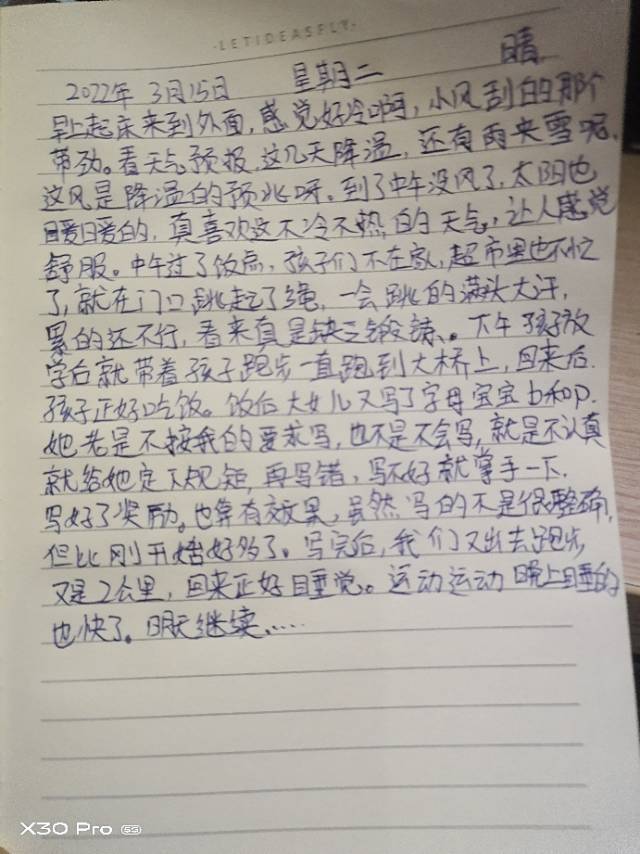 ·LETIDEASFLY·
2022年 3月15日 星期二 晴
早上起床来到外面,感觉好冷啊,小风刮的那个
带劲。看天气预报,这几天降温,还有雨夹雪呢,
这风是降温的预兆呀。到了中午没风了,太阳也
暖暖的,真喜欢这不冷不热的天气,让人感觉
舒服。中午过了饭点,孩子们不在家,超市里也不忙
了,就在门口跳起了绳,一会跳的满头大汗,
累的还不行,看来真是缺乏锻炼、。下午孩子放
学后就带着孩子跑步一直跑到大桥上,回来后
孩子正好吃饭。饭后大女儿又写了字母宝宝b和p.
她老是不按我的要求写,也不是不会写,就是不认真
就给她定下规矩,再写错,写不好就掌手一下,
写好了奖励。也算有效果,虽然写的不是很整确,
但比刚开始好多了。写完后,我们又出去跑步
又是2公里,回来正好睡觉。运动运动晚上睡的
也快了。明天继续.....
X30 Pro 5G